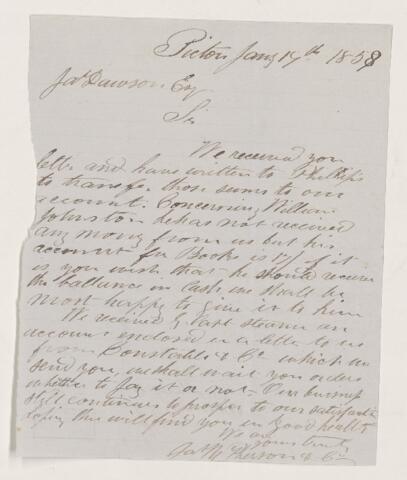 Pictou Jany 17th 1858
Jas Dawson Esq
Sir
We received your
letter and have written to Phillips
to transfer those sums to our
account. Concerning William
Johnston he has not received
any money from us but his
account for Books is 17/ if it
is your wish that he should receive
the ballance in Cash we shall be
most happy to give it to him
We received by last steamer an
account enclosed in a letter to us
from Constable & Co which we
send you, we shall wait you orders
whether to pay it or not. Our business
still continues to prosper to our satisfaction
hoping this will find you in good health
We are
yours truly
Jas & Co